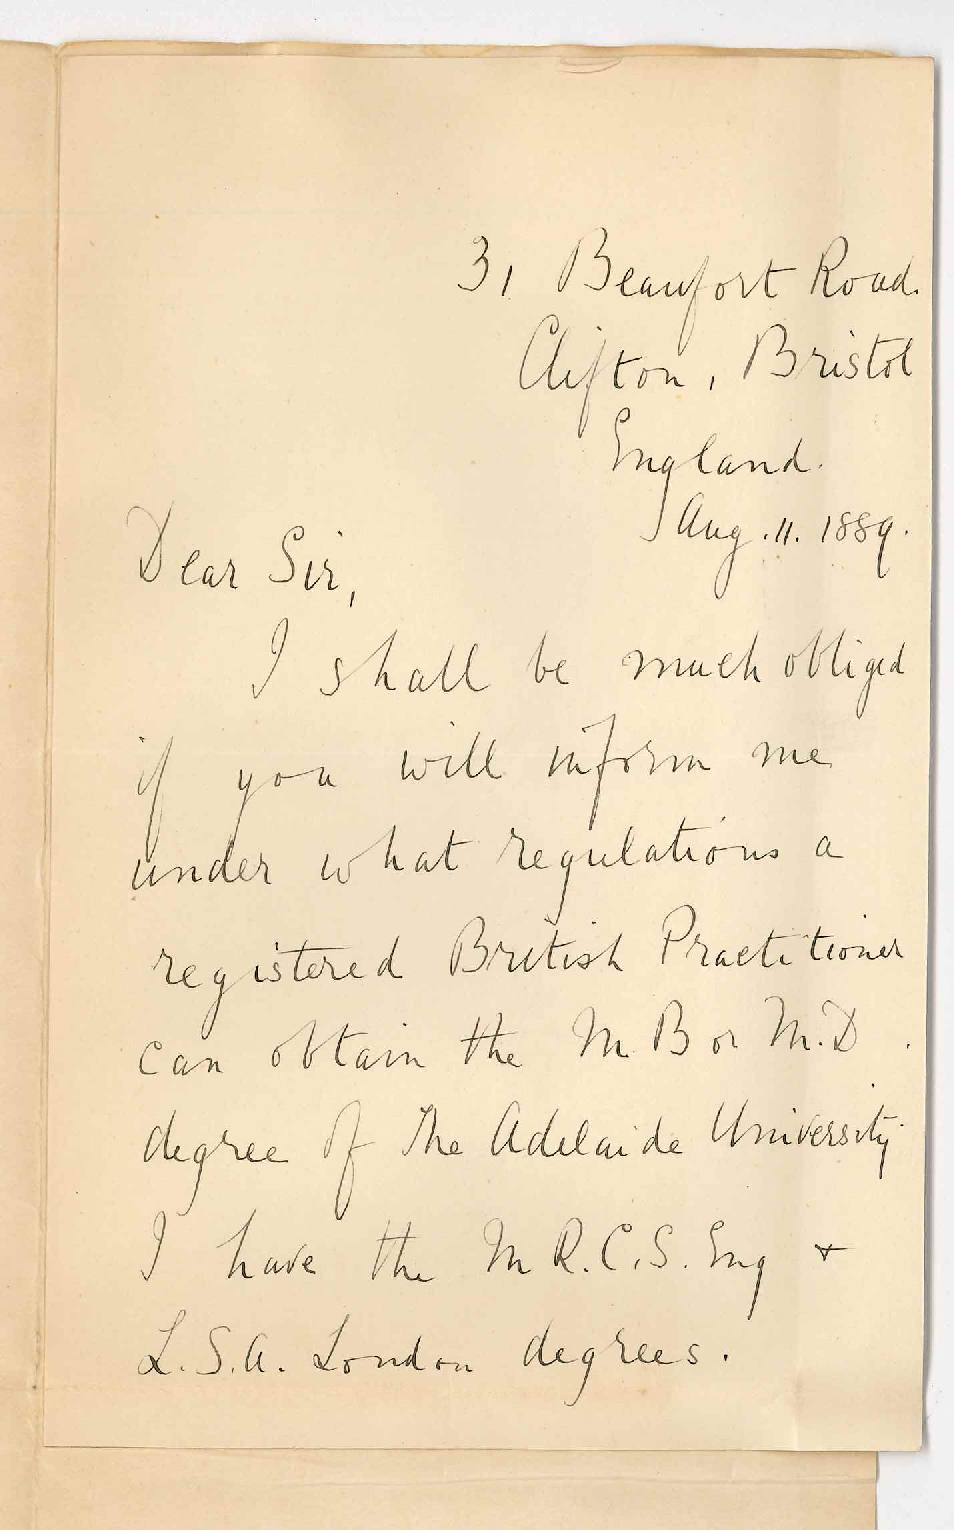 31 Beaufort Road.
Clifton, Bristol
England.
Aug. 11. 1889.
Dear Sir,
I shall be much obliged
if you will inform me
under what regulations a
registered British Practitioner
can obtain the M B or M.D.
degree of the Adelaide University
I have the M R.C.S. Eng &
L.S.A. London degrees.